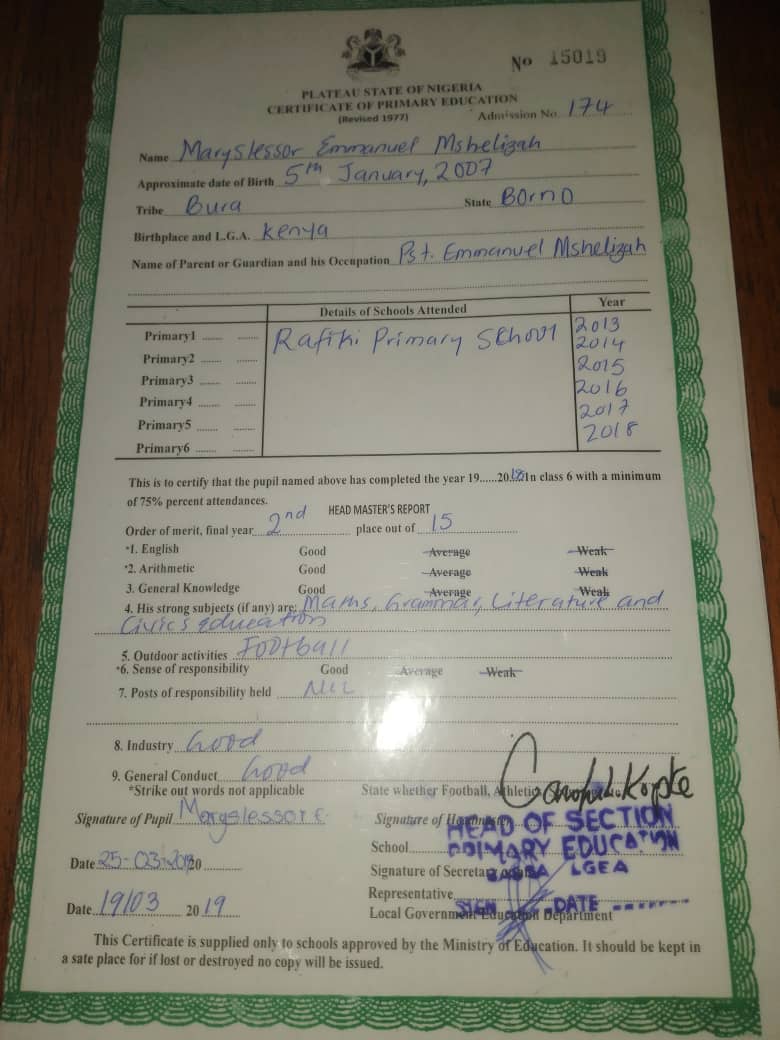 No 15019
PLATEAU STATE OF NIGERIA
CERTIFICATE OF PRIMARY EDUCATION
(Revised 1977)
Admission No. 174
Name Maryslessor Emmanuel Mshelizah
Approximate date of Birth 5th January, 2007
Tribe Bura State Borno
Birthplace and L.G.A. Kenya
Name of Parent or Guardian and his Occupation Pst. Emmanuel Mshelizah
Details of Schools Attended Year
Primary1 ...... ...... Rafiki Primary School 2013
Primary2 ...... ...... 2014
Primary3 ...... ...... 2015
Primary4 ...... ...... 2016
Primary5 ...... ...... 2017
Primary6 ...... ...... 2018
This is to certify that the pupil named above has completed the year 19......2018 In class 6 with a minimum
of 75% percent attendances.
HEAD MASTER'S REPORT
Order of merit, final year 2nd place out of 15
*1. English Good Average Weak
*2. Arithmetic Good Average Weak
3. General Knowledge Good Average Weak
4. His strong subjects (if any) are: Maths, Grammar, Literature and
Civics education
5. Outdoor activities Football
*6. Sense of responsibility Good Average Weak
7. Posts of responsibility held Nil
8. Industry Good
9. General Conduct Good
*Strike out words not applicable State whether Football, Athletic
Signature of Pupil Maryslessor E Signature of
HEAD OF SECTION
School
PRIMARY EDUCATION
Date 25-03- 20
Signature of Secretary
LGEA
Representative
SIGN DATE
Date 19/03 2019 Local Government Education Department
This Certificate is supplied only to schools approved by the Ministry of Education. It should be kept in
a sate place for if lost or destroyed no copy will be issued.